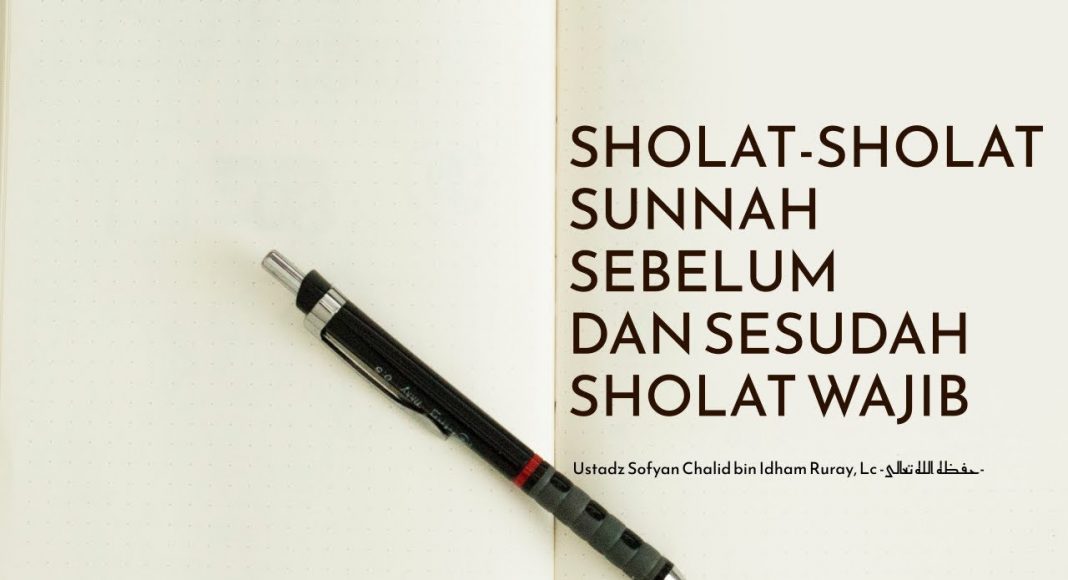 SHOLAT-SHOLAT
SUNNAH
SEBELUM
DAN SESUDAH
SHOLAT WAJIB
Ustadz Sofyan Chalid bin Idham Ruray, Lc -حفظه الله تعالى-